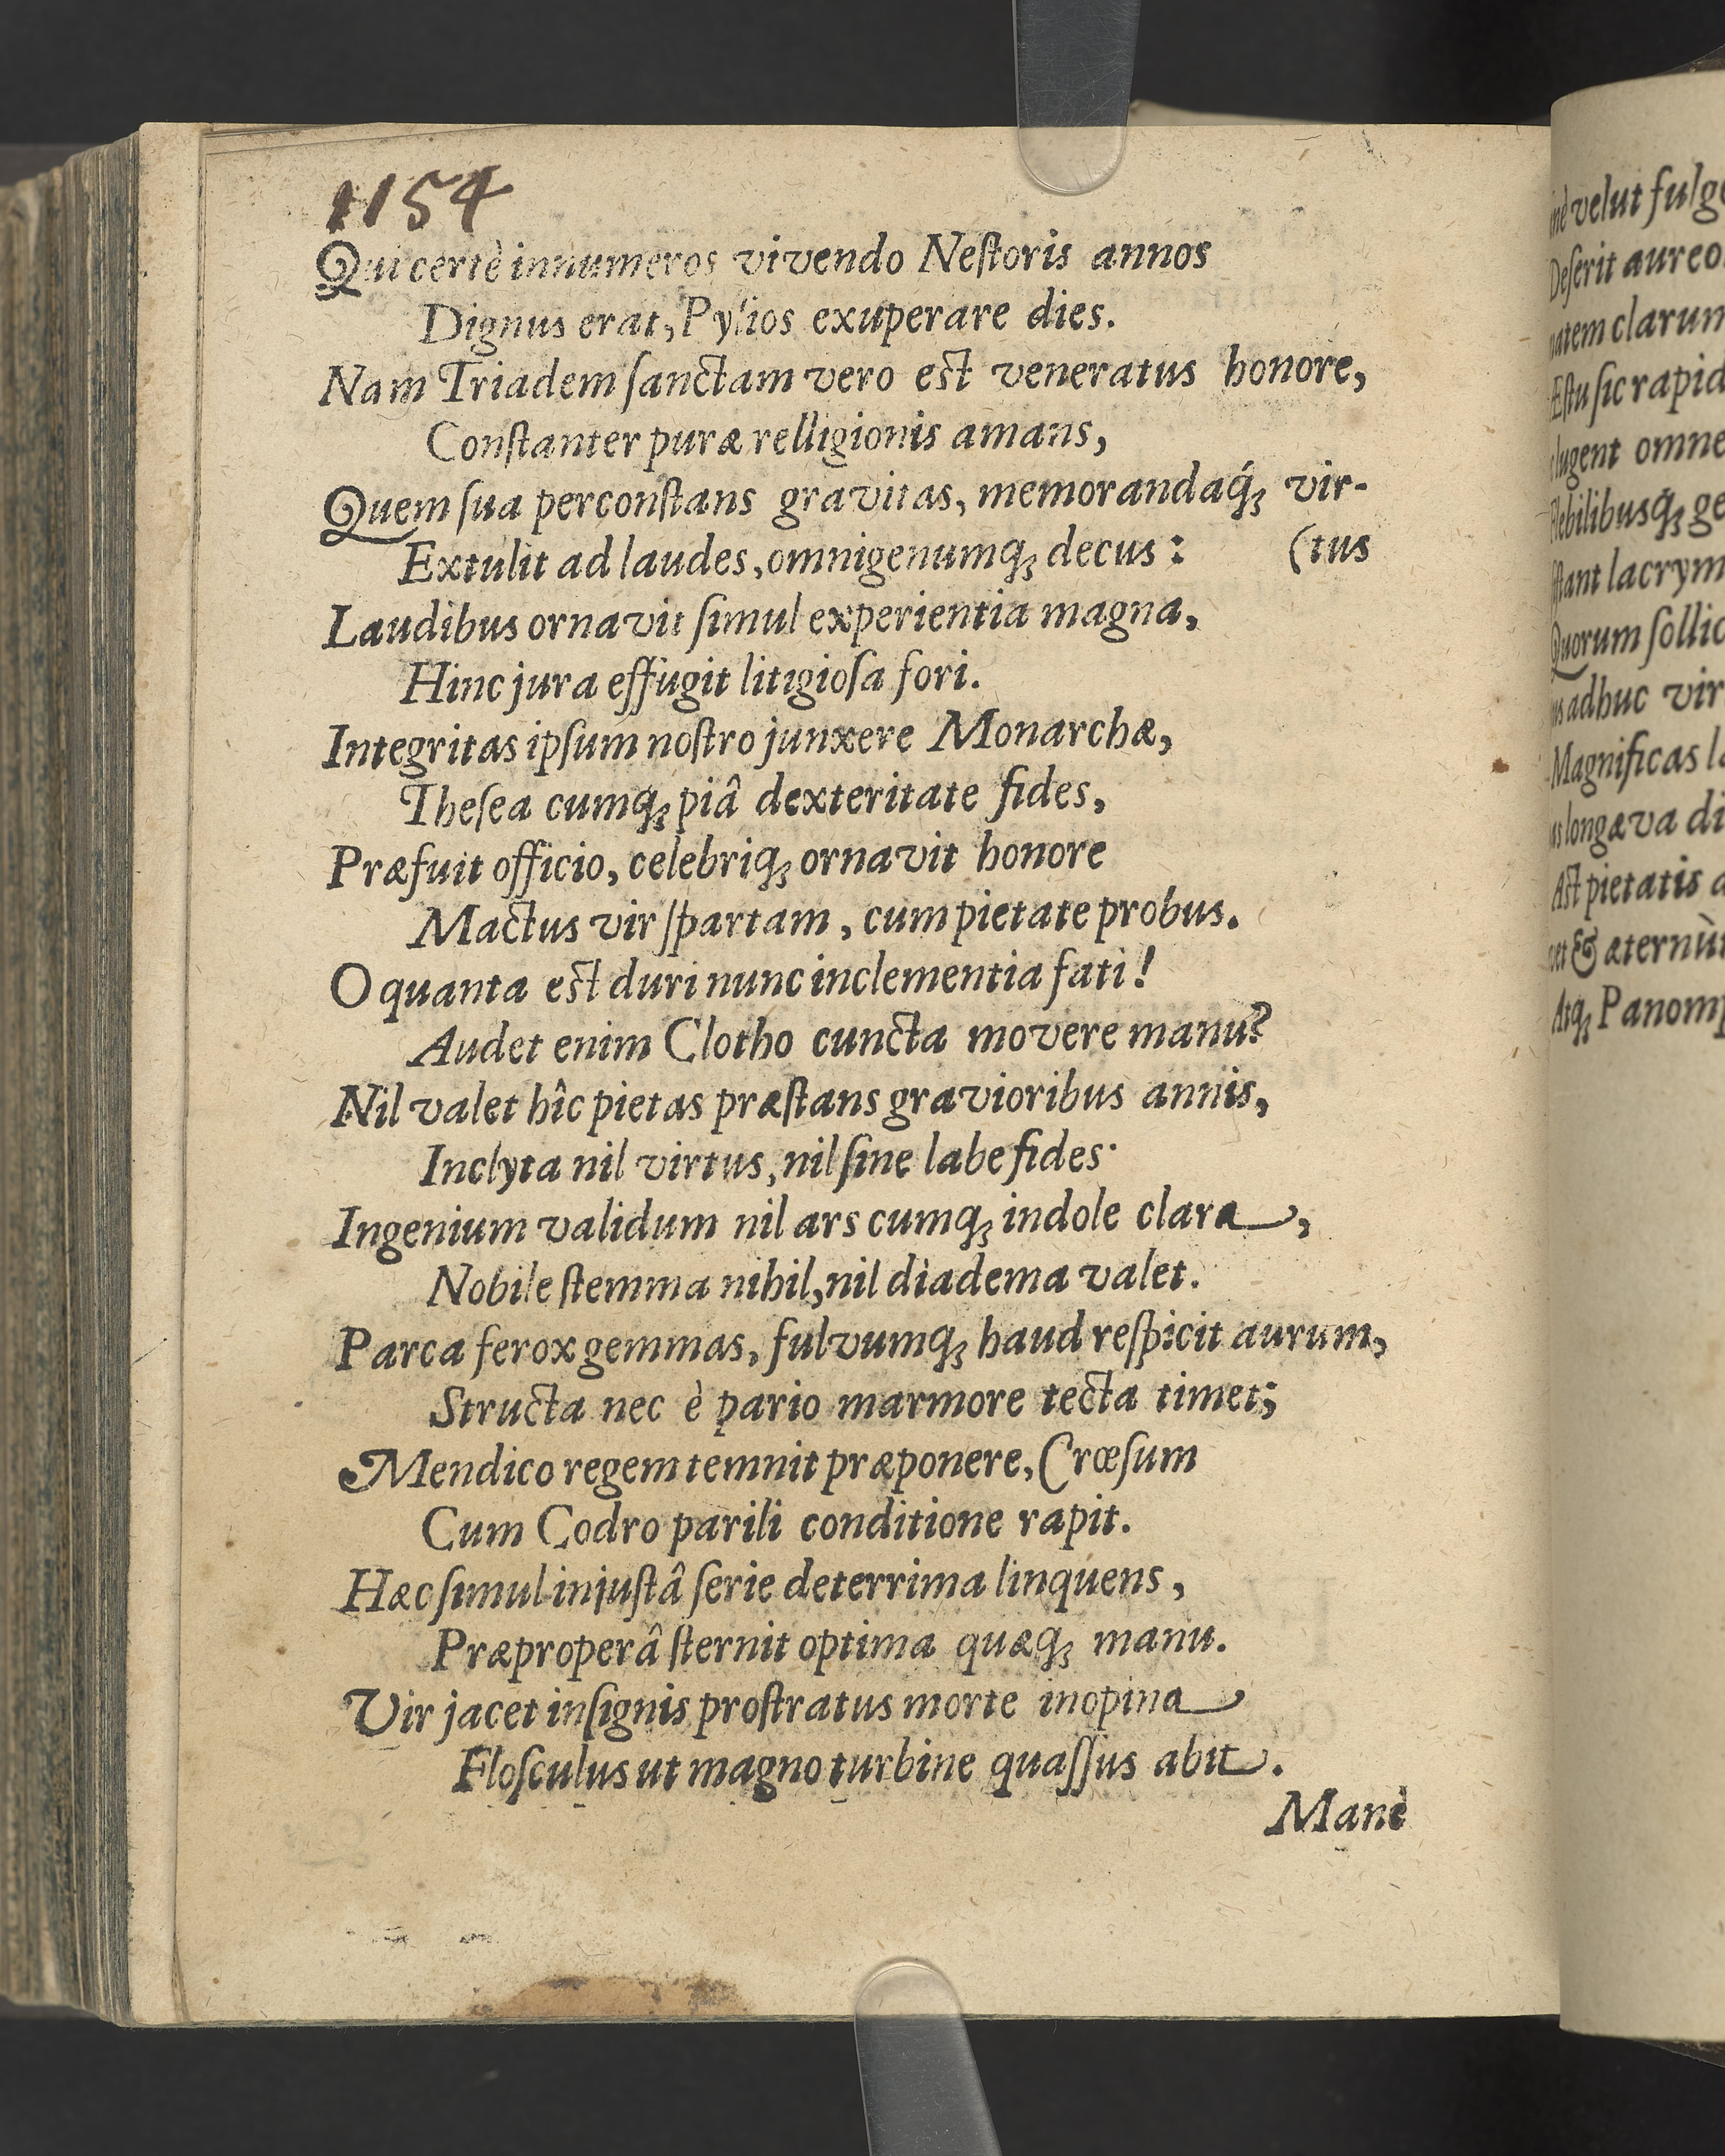 1154
Qui certè innumeros vivendo Neſtoris annos
Dignus erat, Pylios exuperare dies.
Nam Triadem ſanctam vero eſt veneratus honore,
Conſtanter puræ relligionis amans,
Quem ſua perconſtans gravitas, memorandaq́ꝫ vir-
Extulit ad laudes, omnigenumqꝫ decus: (tus
Laudibus ornavit ſimul experientia magna,
Hinc jura effugit litigioſa fori.
Integritas ipſum noſtro junxere Monarchæ,
Theſea cumqꝫ piâ dexteritate fides,
Præfuit officio, celebriqꝫ ornavit honore
Mactus vir ſpartam, cum pietate probus.
O quanta eſt duri nunc inclementia fati!
Audet enim Clotho cuncta movere manu?
Nil valet hîc pietas præſtans gravioribus annis,
Inclyta nil virtus, nil ſine labe fides·
Ingenium validum nil ars cumqꝫ indole clara,
Nobile ſtemma nihil, nil diadema valet.
Parca ferox gemmas, fulvumqꝫ haud reſpicit aurum,
Structa nec è pario marmore tecta timet;
Mendico regem temnit præponere, Crœſum
Cum Codro parili conditione rapit.
Hæc ſimul injuſtâ ſerie deterrima linquens,
Præproperâ ſternit optima quæqꝫ manu.
Vir jacet inſignis proſtratus morte inopina
Floſculus ut magno turbine quaſſus abit.
Manè
velut
Deſerit
clarum
ſic
lugent
lacrym
Quorum
adhuc vir
Magnificas
longæva
Aſt pietatis
& æternùm
Atqꝫ